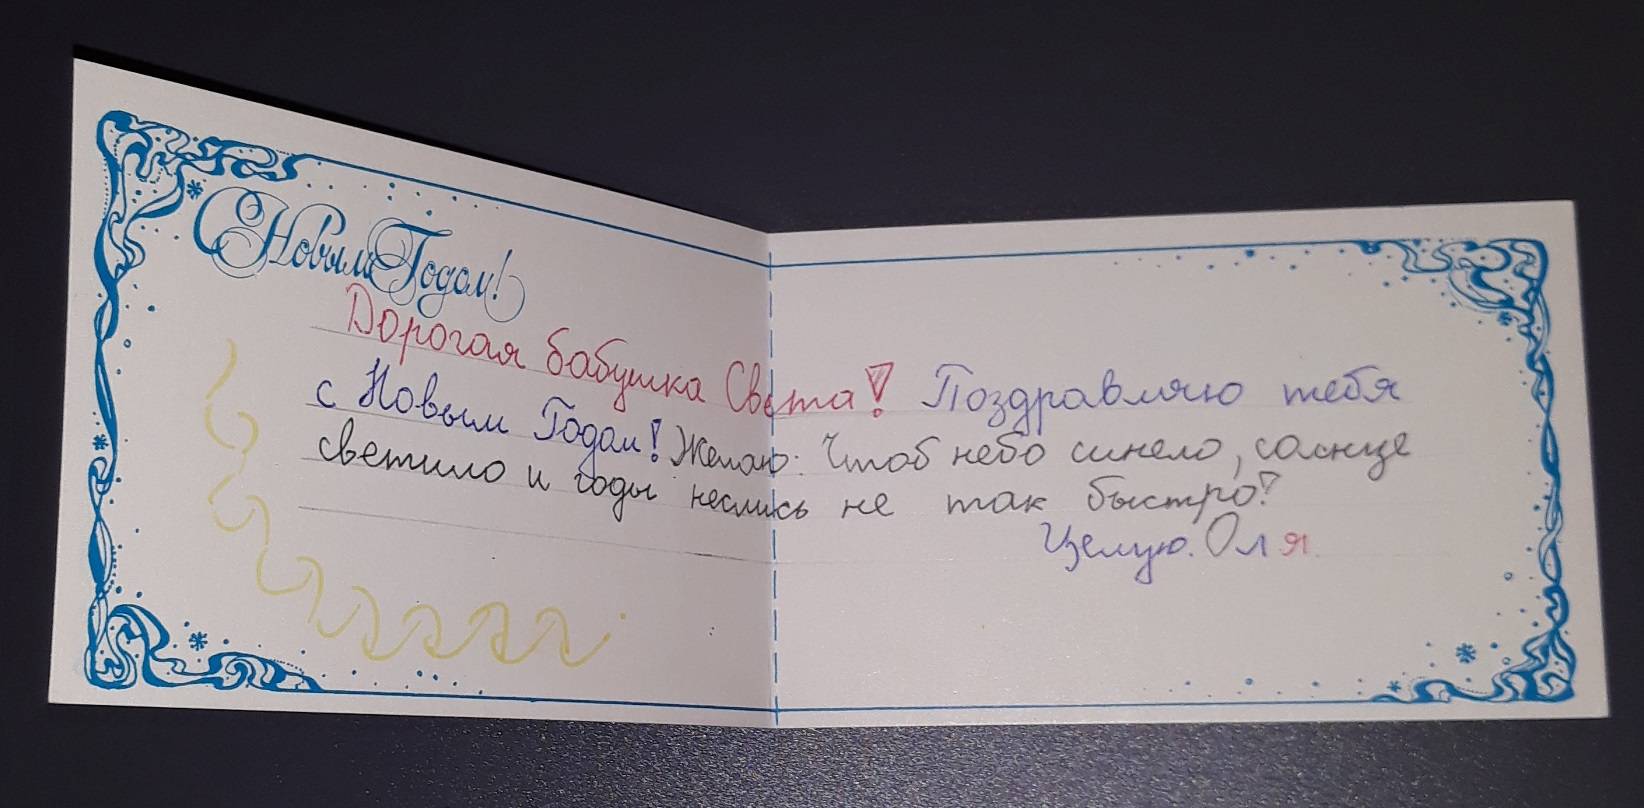 С Новым Годом!
Дорогая бабушка Света! Поздравляю тебя
с Новым Годом! Желаю: Чтоб небо синело, солнце
светило и годы неслись не так быстро!
Целую. Оля.